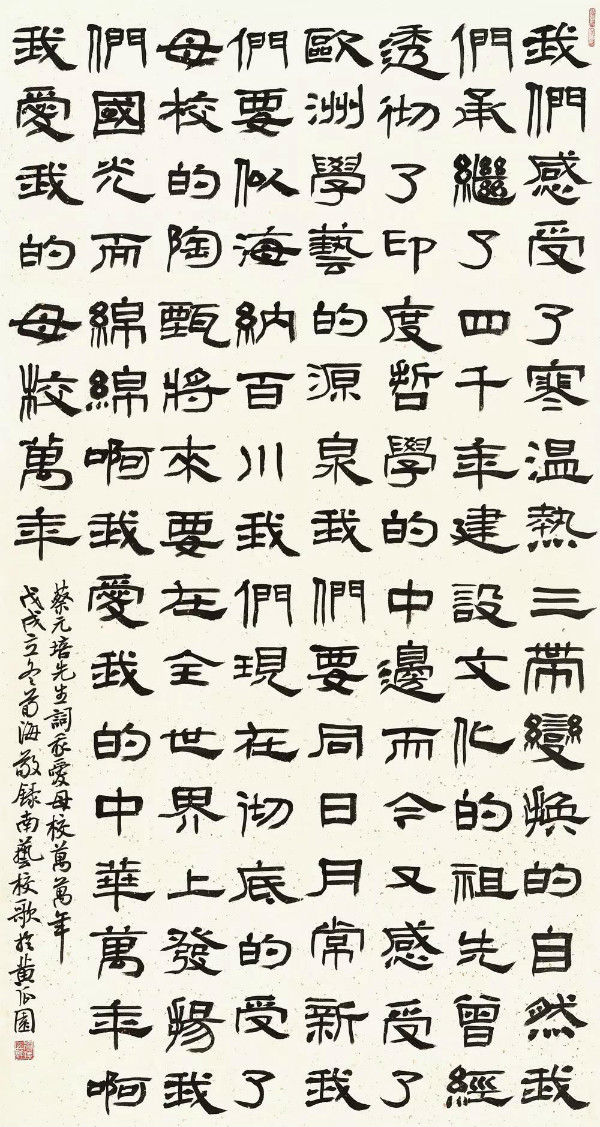 我們感受了寒温熱三帶變換的自然我
們承繼了四千年建設文化的祖先曾經
透彻了印度哲學的中邊而今又感受了
歐洲學藝的源泉我們要同日月常新我
們要似海納百川我們現在彻底的受了
母校的陶甄將來要在全世界上發揚我
們國光而綿綿啊我愛我的中華萬年啊
我愛我的母校萬年
蔡元培先生詞我愛母校萬萬年
戊戌立冬海敬録南藝校歌於黄瓜園